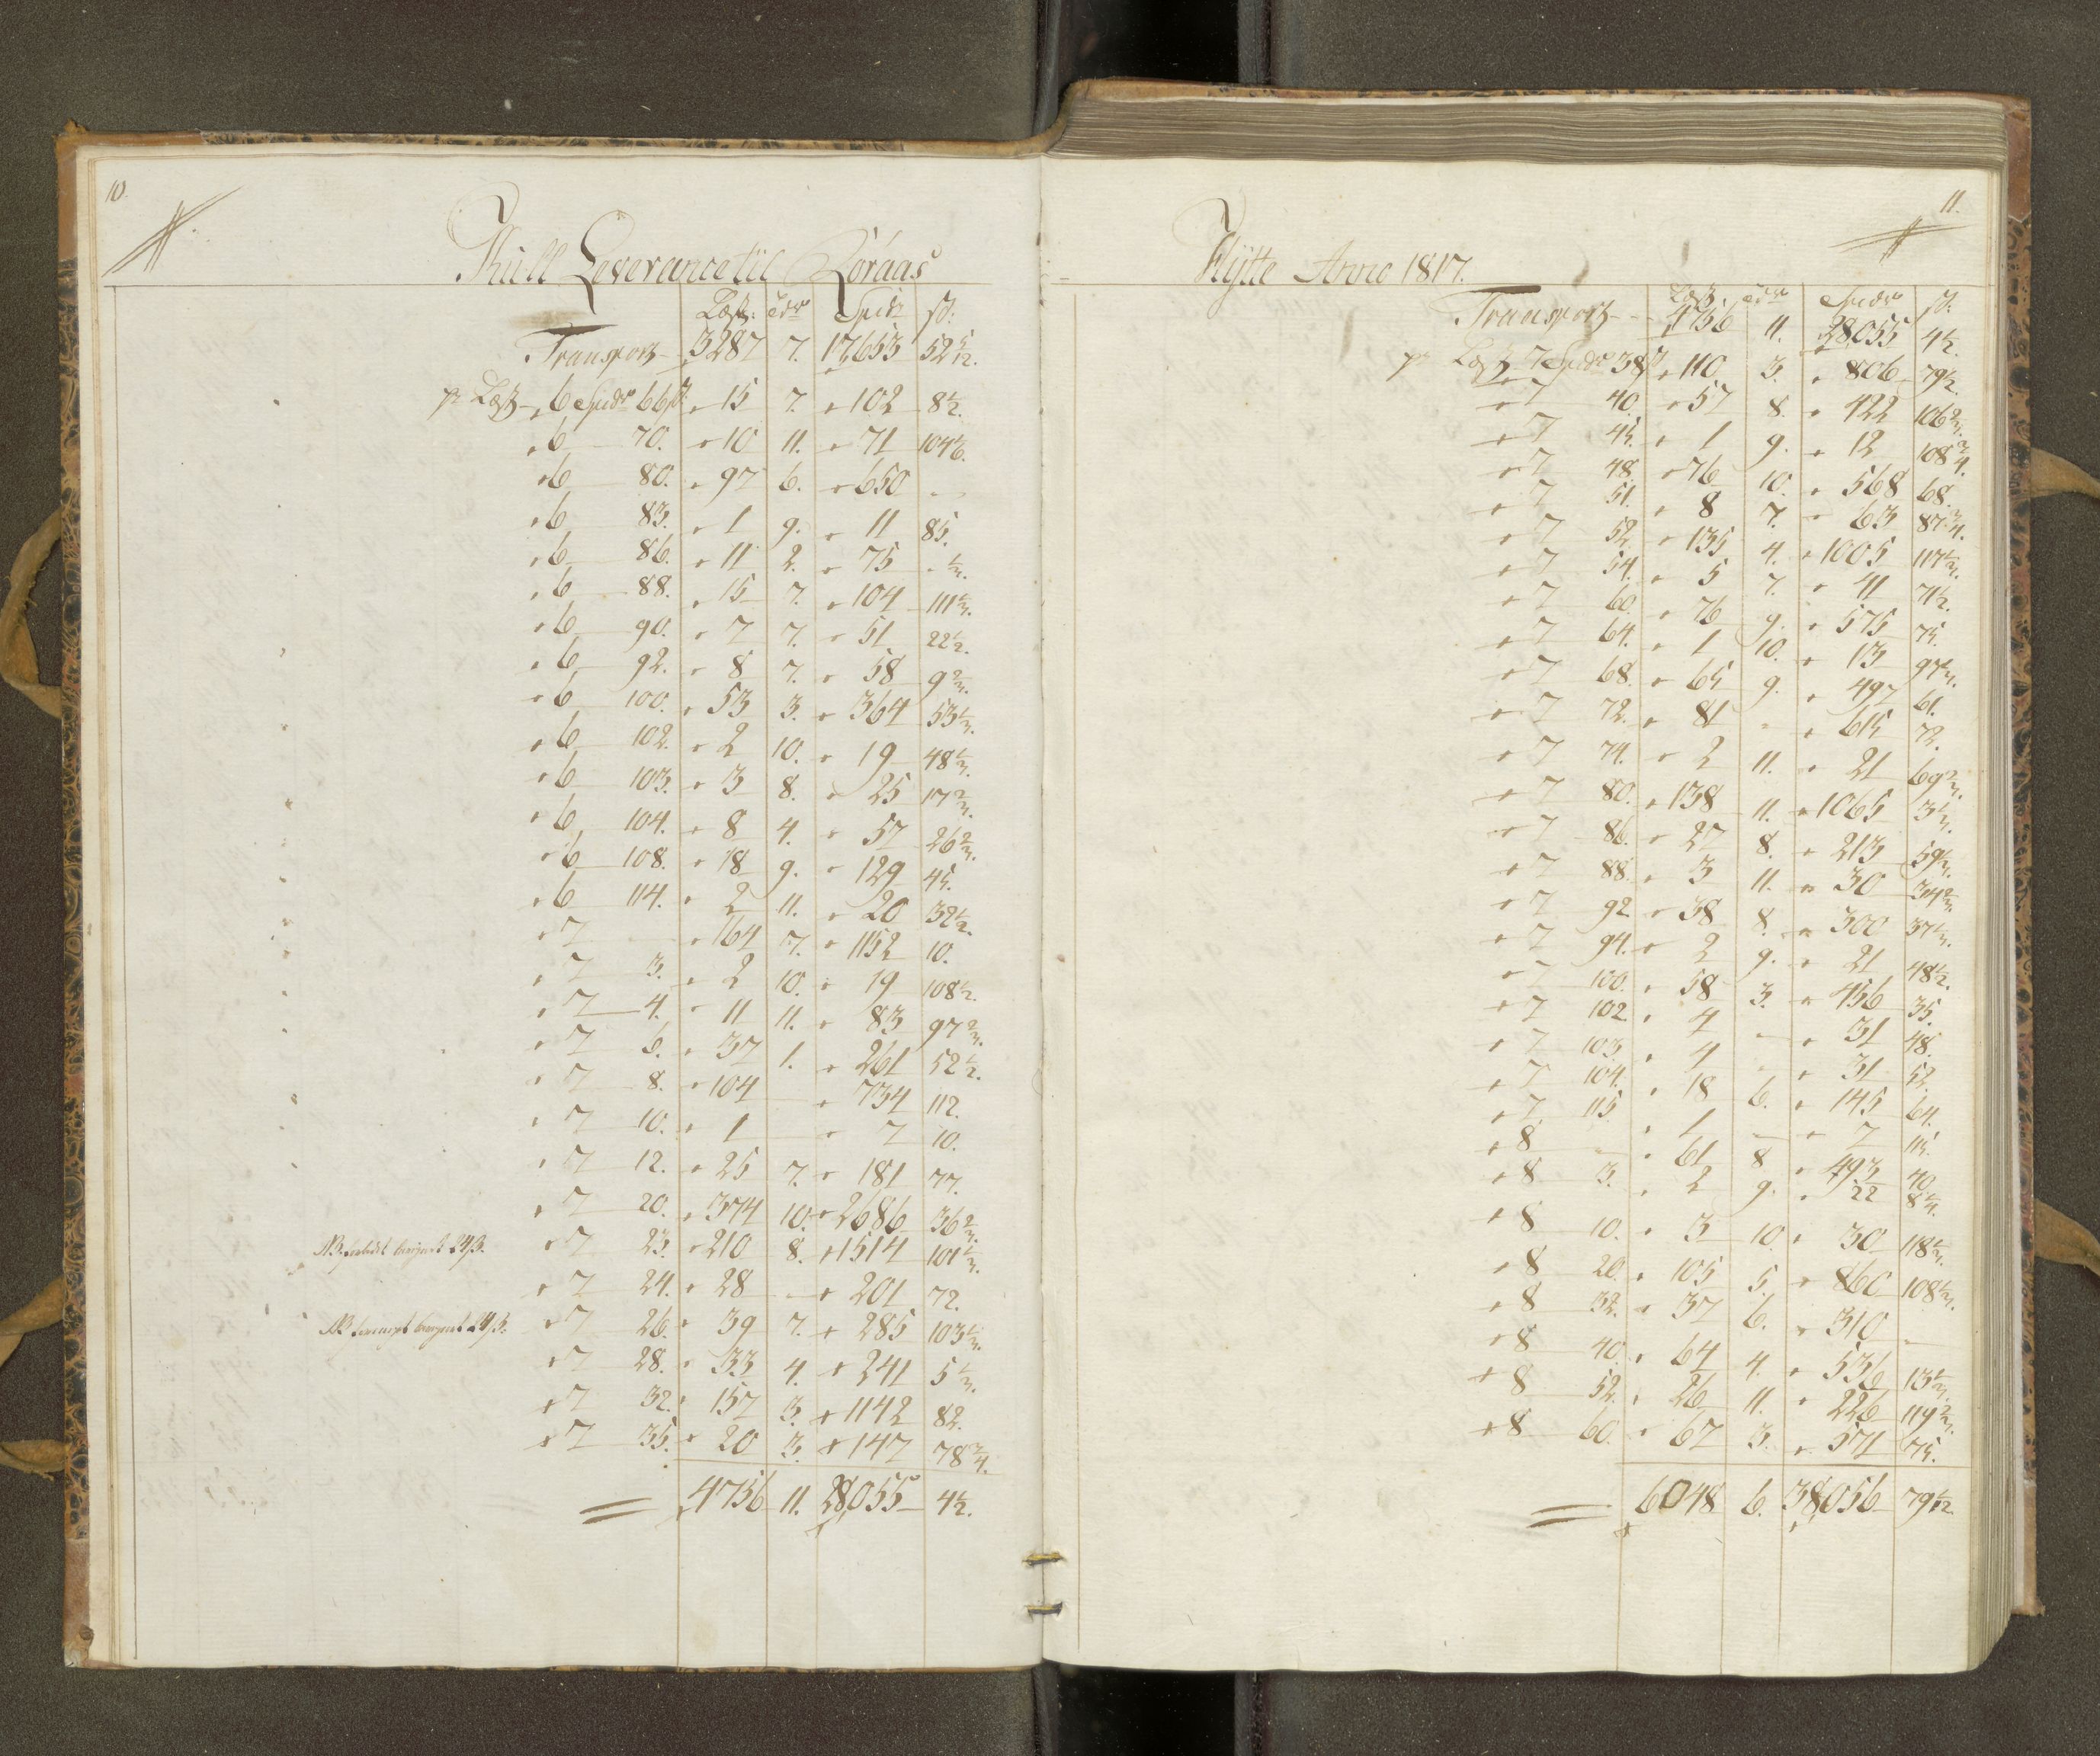 10.
Kull Leverance til Röraas
Læst: tdr Spdr ß:
Transport 3287 7. 17,653 52 5/12.
pr Læst 6 Spdr 66 ß 15 7. 102 8 1/2.
6 70. 10 11. 71 104 1/6.
6 80. 97 6. 650 -
6 83. 1 9. 11 85.
6 86. 11 2. 75 - 1/3.
6 88. 15 7. 104 111 1/3.
6 90. 7 7. 51 22 1/2.
6 92. 8 7. 58 9 2/3.
6 100. 53 3. 364 53 1/3.
6 102. 2 10. 19 48 1/3.
6 103. 3 8. 25 17 2/3.
6 104. 8 4. 57 26 2/3.
6 108. 18 9. 129 45.
6 114. 2 11. 20 32 1/2.
7 - 164 7. 1152 10.
7 3. 2 10. 19 108 1/2.
7 4. 11 11. 83 97 2/3.
7 6. 37 1. 261 52 1/2.
7 8. 104 - 734 112.
7 10. 1 - 7 10.
7 12. 25 7. 181 77.
7 20. 374 10. 2686 36 2/3.
NB 24/3. 7 23. 210 8. 1514 101 1/3.
7 24. 28 - 201 72.
NB 7 26. 39 7. 285 103 1/3.
7 28. 33 4. 241 5 1/3.
7 32. 157 3. 1142 82.
7 35. 20 3. 147 78 3/4.
4756 11. 28,055 4 1/2.
11.
Hytte Anno 1817.
Læst tdr Spdr ß:
Transport 4756 11. 28,055 4 1/2.
pr Læst 7 Spdr 38 ß 110 3. 806 79 1/2.
7 40. 57 8. 422 106 2/3.
7 45. 1 9. 12 108 3/4.
7 48. 76 10. 568 68.
7 51. 8 7. 63 87 3/4.
7 52. 135 4. 1005 117 1/3.
7 54. 5 7. 41 71 1/2.
7 60. 76 9. 575 75.
7 64. 1 10. 13 97 1/3.
7 68. 65 9. 497 61.
7 72. 81 - 615 72.
7 74. 2 11. 21 69 2/3.
7 80. 138 11. 1065 3 1/3.
7 86. 27 8. 213 59 1/3.
7 88. 3 11. 30 34 2/3.
7 92 38 8. 300 37 1/3.
7 94. 2 9. 21 48 1/2.
7 100. 58 3. 456 35.
7 102. 4 - 31 48.
7 103. 4 - 31 52.
7 104. 18 6. 145 64.
7 115 1 - 7 115.
8 - 61 8 493 40.
8 3. 2 9. 22 8 1/4.
8 10. 3 10. 30 118 1/3.
8 20. 105 5. 860 108 1/3.
8 32. 37 6. 310 -
8 40. 64 4. 536 13 1/3.
8 52. 26 11. 226 119 2/3.
8 60. 67 3. 571 75.
6048 6. 38,056 79 1/12.